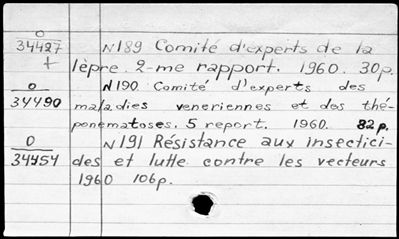 O
34427
+
N189 Comité d'experts de la
lèpre. 2-me rapport. 1960. 30p.
O
34490
N190 Comité d'experts des
maladies veneriennes et des thé-
ponematoses. 5 report. 1960. 82p.
O
34454
N191 Résistance aux insectici-
des et lutte contre les vecteurs
1960 106p.